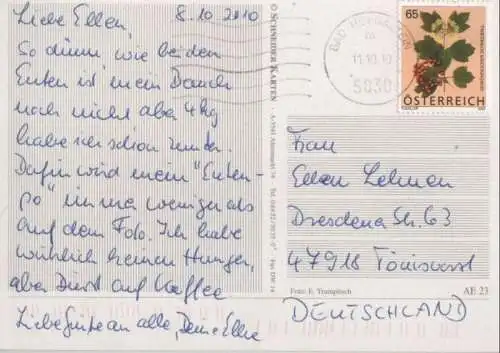 Liebe Ellen, 8.10.2010
So dünn, wie bei den
Enten ist mein Bauch
noch nicht aber 4 kg
habe ich schon runter.
Dafür wird mein "Enten-
po" immer weniger als
auf dem Foto. Ich habe
wirklich keinen Hunger,
aber Durst auf Kaffee
Liebe Grüße an alle, Deine Ellie
© SCHNEIDER KARTEN
Fax DW 14
BAD HOFGASTEIN
11.10.10
65
ÖSTERREICH
Frau
Ellen Lehmen
Dresdener Str. 63
47918 Tönisvorst
Foto: E. Trumpitsch
AE 23
DEUTSCHLAND